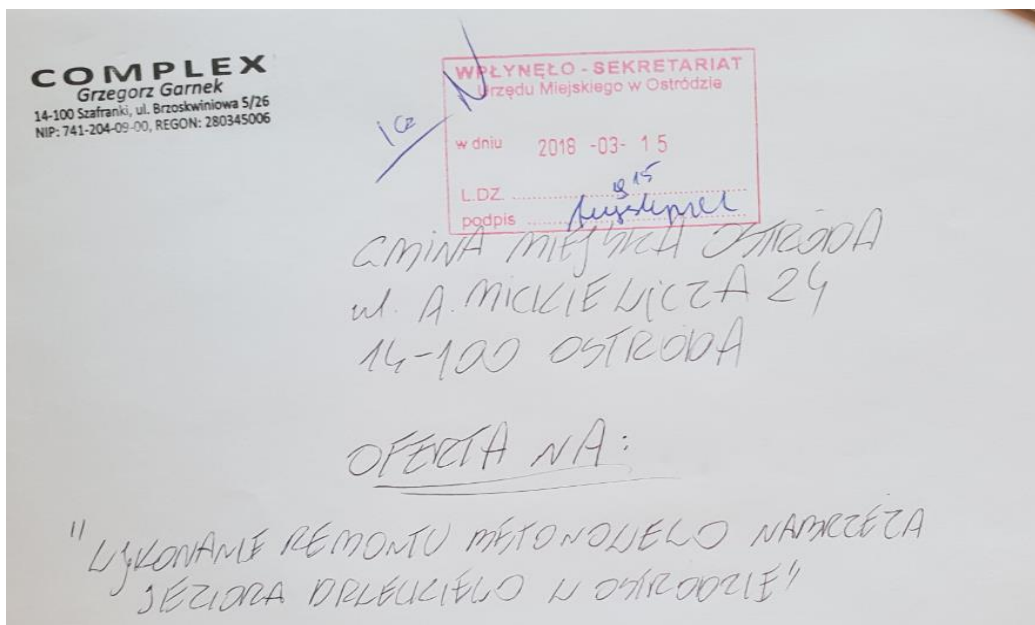 COMPLEX
Grzegorz Garnek
14-100 Szafranki, ul. Brzoskwiniowa 5/26
NIP: 741-204-09-00, REGON: 280345006
WPŁYNĘŁO - SEKRETARIAT
Urzędu Miejskiego w Ostródzie
w dniu 2018 -03- 15
L.DZ.
podpis
GMINA MIEJSKA OSTRÓDA
ul. A. MICKIEWICZA 24
14-100 OSTRÓDA
OFERTA NA:
"WYKONANIE REMONTU BETONOWEGO NABRZEŻA
JEZIORA DRWĘCKIEGO W OSTRÓDZIE"